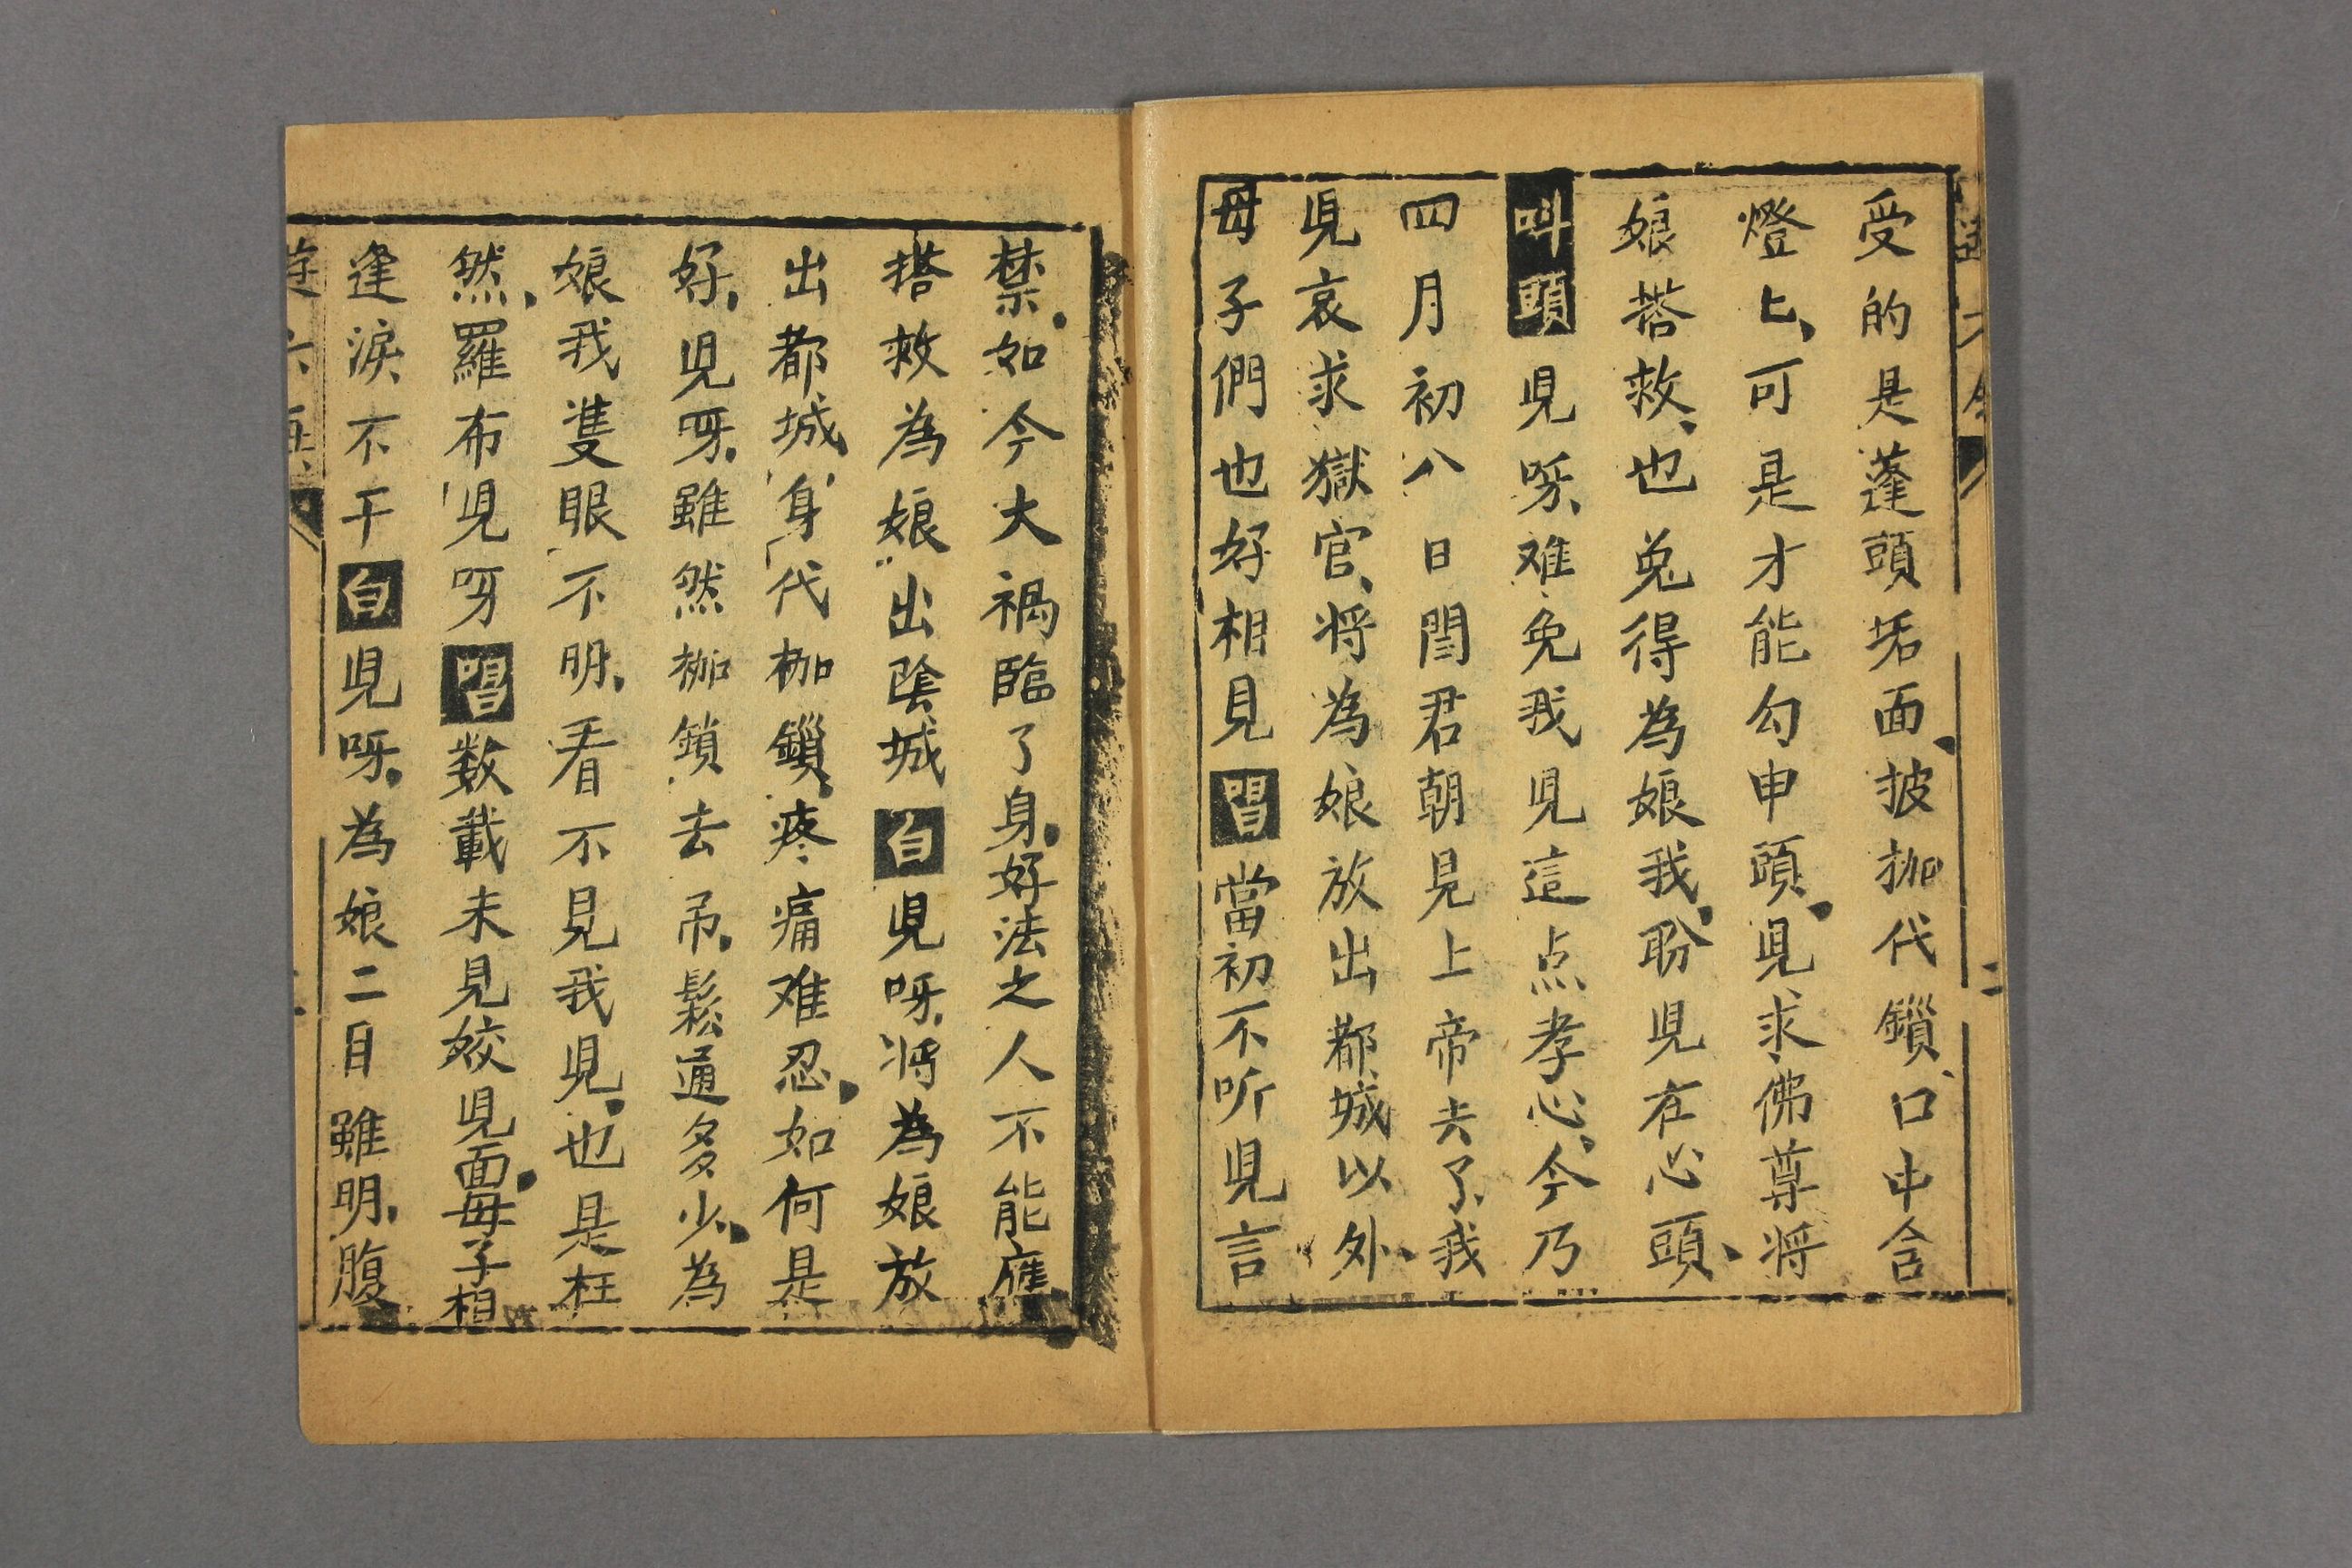 受的是蓬頭垢面、披枷代鎖、口中含
燈上、可是才能勾申頭、児求佛尊将
娘搭救、也免得為娘我、盼児在心頭、
叫頭児呀、难免我児這点孝心、今乃
四月初八日閻君朝見上帝去了、我
児哀求獄官、将為娘放出都城以外、
母子們也好相見唱當初不听児言
禁、如今大禍臨了身、好法之人不能應
搭救為娘出陰城白児呀、将為娘放
出都城、身代枷鎖、疼痛难忍、如何是
好、児呀、雖然枷鎖去吊、鬆通多少、為
娘我隻眼不明、看不見我児、也是枉
然、羅布児呀唱数載未見姣児面、母子相
逢淚不干白児呀、為娘二目雖明、腹